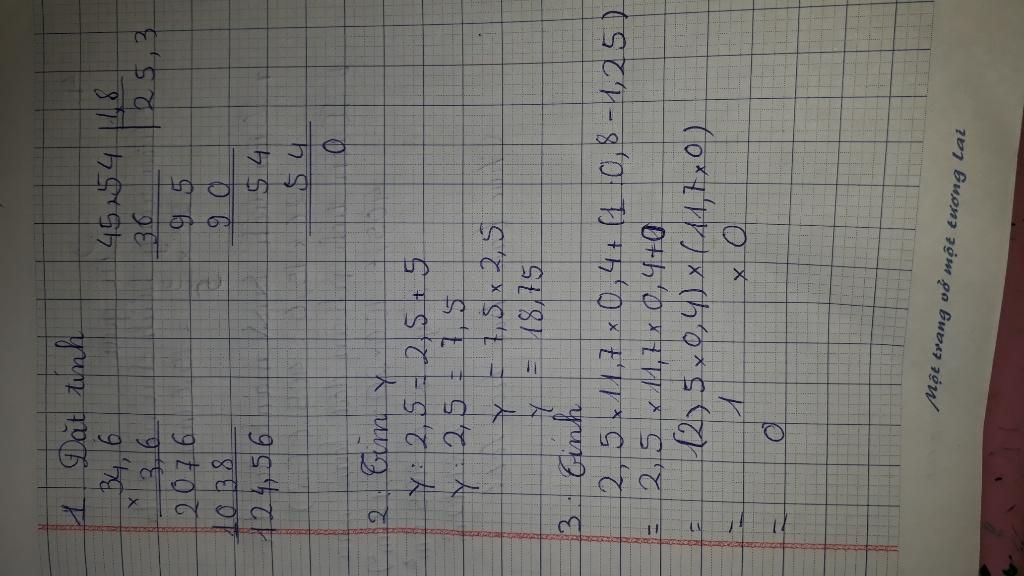 1 Đặt tính
34,6 45,54 | 1,8
× 3,6 36 | 25,3
2076 95
1038 90
124,56 54
54
0
2. Tìm Y
Y : 2,5 = 2,5 + 5
Y : 2,5 = 7,5
Y = 7,5 × 2,5
Y = 18,75
3. Tính
2,5 × 11,7 × 0,4 + (1 : 0,8 - 1,25)
= 2,5 × 11,7 × 0,4 + 0
= (2,5 × 0,4) × (11,7 × 0)
= 1 × 0
= 0
Một trang vở một tương lai